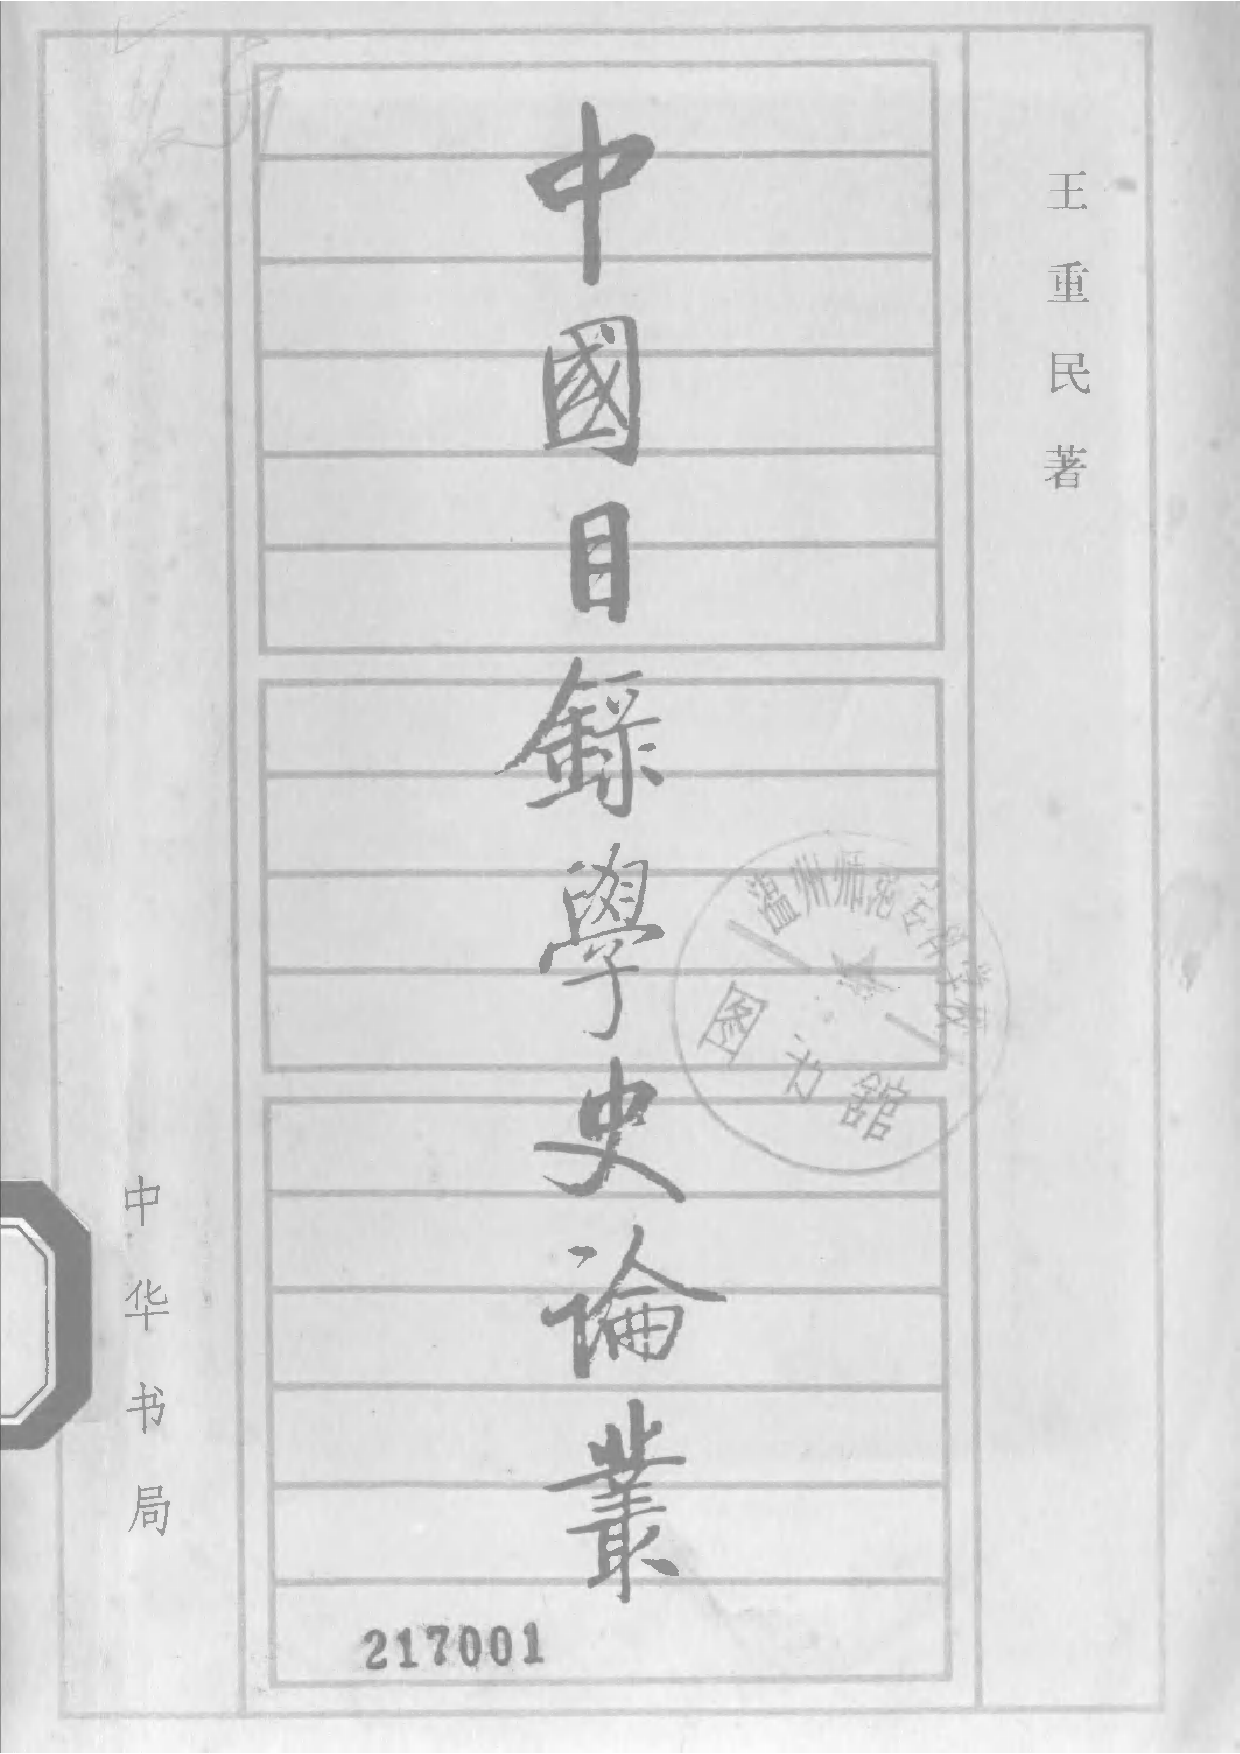 王重民著
中國目錄學史論叢
温州师范专科学校
图书館
中华书局
217001